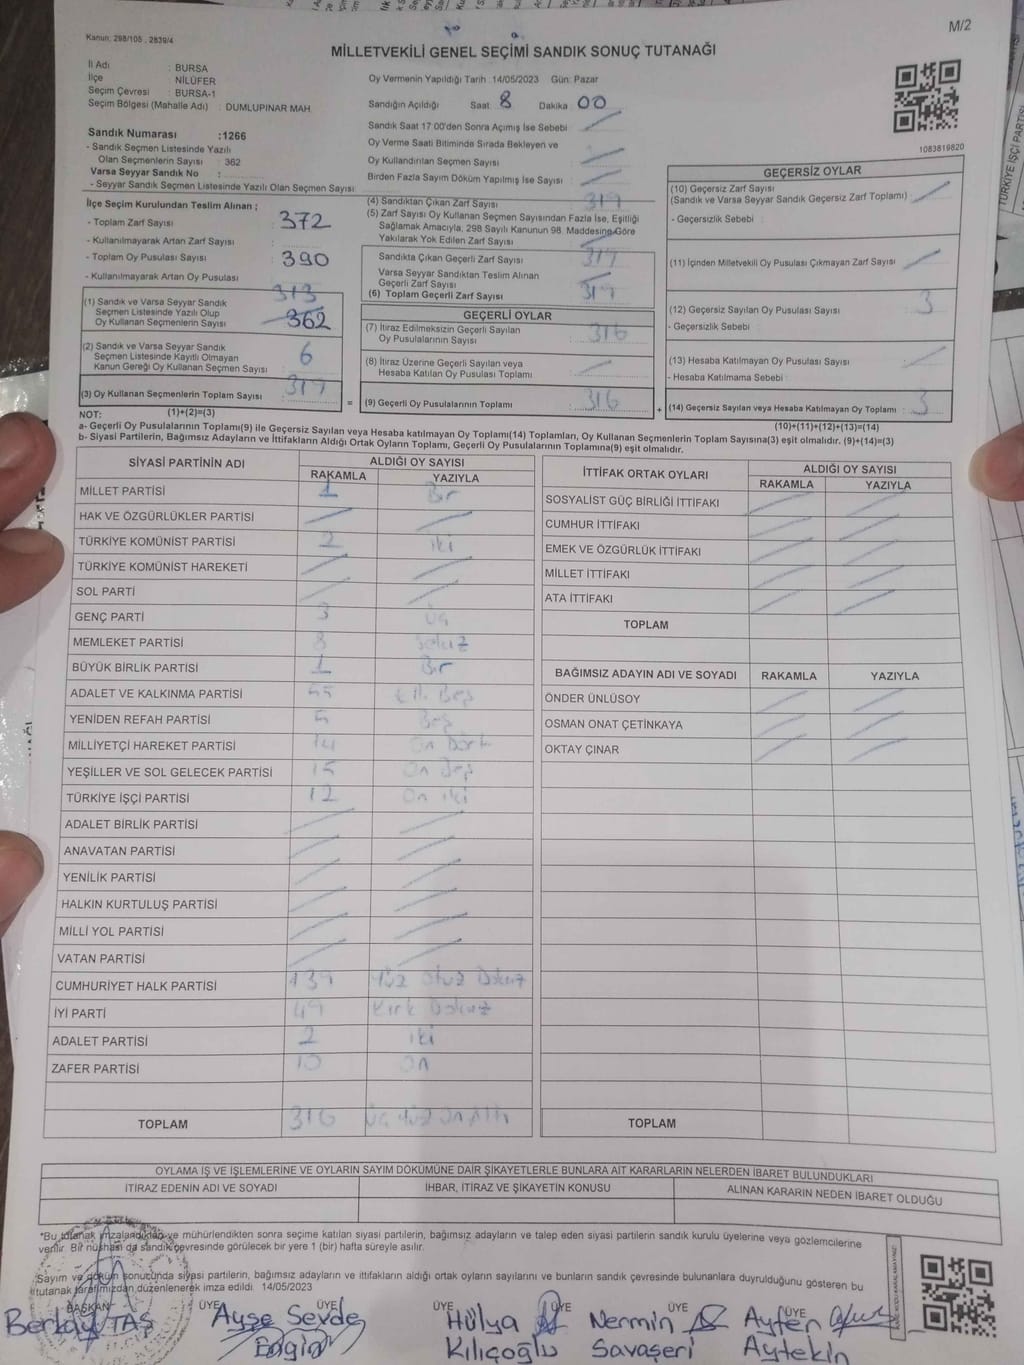 M/2
Kanun: 298/105, 2839/4
MİLLETVEKİLİ GENEL SEÇİMİ SANDIK SONUÇ TUTANAĞI
İl Adı : BURSA
İlçe : NİLÜFER
Seçim Çevresi : BURSA-1
Seçim Bölgesi (Mahalle Adı) : DUMLUPINAR MAH.
Sandık Numarası :1266
- Sandık Seçmen Listesinde Yazılı
Olan Seçmenlerin Sayısı : 362
Varsa Seyyar Sandık No :
- Seyyar Sandık Seçmen Listesinde Yazılı Olan Seçmen Sayısı:
Oy Vermenin Yapıldığı Tarih :14/05/2023 Gün: Pazar
Sandığın Açıldığı Saat 8 Dakika 00
Sandık Saat 17:00'den Sonra Açımış İse Sebebi :
Oy Verme Saati Bitiminde Sırada Bekleyen ve
Oy Kullandırılan Seçmen Sayısı :
Birden Fazla Sayım Döküm Yapılmış İse Sayısı :
1083819820
İlçe Seçim Kurulundan Teslim Alınan ;
- Toplam Zarf Sayısı : 372
- Kullanılmayarak Artan Zarf Sayısı :
- Toplam Oy Pusulası Sayısı : 390
- Kullanılmayarak Artan Oy Pusulası :
(1) Sandık ve Varsa Seyyar Sandık
Seçmen Listesinde Yazılı Olup
Oy Kullanan Seçmenlerin Sayısı : 313 362
(2) Sandık ve Varsa Seyyar Sandık
Seçmen Listesinde Kayıtlı Olmayan
Kanun Gereği Oy Kullanan Seçmen Sayısı : 6
(3) Oy Kullanan Seçmenlerin Toplam Sayısı : 319
(1)+(2)=(3)
(4) Sandıktan Çıkan Zarf Sayısı : 319
(5) Zarf Sayısı Oy Kullanan Seçmen Sayısından Fazla İse, Eşitliği
Sağlamak Amacıyla, 298 Sayılı Kanunun 98. Maddesine Göre
Yakılarak Yok Edilen Zarf Sayısı :
Sandıkta Çıkan Geçerli Zarf Sayısı : 319
Varsa Seyyar Sandıktan Teslim Alınan
Geçerli Zarf Sayısı :
(6) Toplam Geçerli Zarf Sayısı : 319
GEÇERLİ OYLAR
(7) İtiraz Edilmeksizin Geçerli Sayılan
Oy Pusulalarının Sayısı : 316
(8) İtiraz Üzerine Geçerli Sayılan veya
Hesaba Katılan Oy Pusulası Toplamı :
= (9) Geçerli Oy Pusulalarının Toplamı : 316
GEÇERSİZ OYLAR
(10) Geçersiz Zarf Sayısı
(Sandık ve Varsa Seyyar Sandık Geçersiz Zarf Toplamı) :
- Geçersizlik Sebebi :
(11) İçinden Milletvekili Oy Pusulası Çıkmayan Zarf Sayısı :
(12) Geçersiz Sayılan Oy Pusulası Sayısı : 3
- Geçersizlik Sebebi :
(13) Hesaba Katılmayan Oy Pusulası Sayısı :
- Hesaba Katılmama Sebebi :
+ (14) Geçersiz Sayılan veya Hesaba Katılmayan Oy Toplamı : 3
(10)+(11)+(12)+(13)=(14)
NOT:
a- Geçerli Oy Pusulalarının Toplamı(9) ile Geçersiz Sayılan veya Hesaba katılmayan Oy Toplamı(14) Toplamları, Oy Kullanan Seçmenlerin Toplam Sayısına(3) eşit olmalıdır. (9)+(14)=(3)
b- Siyasi Partilerin, Bağımsız Adayların ve İttifakların Aldığı Ortak Oyların Toplamı, Geçerli Oy Pusulalarının Toplamına(9) eşit olmalıdır.
SİYASİ PARTİNİN ADI ALDIĞI OY SAYISI
RAKAMLA YAZIYLA
MİLLET PARTİSİ 1 Bir
HAK VE ÖZGÜRLÜKLER PARTİSİ
TÜRKİYE KOMÜNİST PARTİSİ 2 iki
TÜRKİYE KOMÜNİST HAREKETİ
SOL PARTİ
GENÇ PARTİ 3 üç
MEMLEKET PARTİSİ 8 Sekiz
BÜYÜK BİRLİK PARTİSİ 1 Bir
ADALET VE KALKINMA PARTİSİ 55 Elli Beş
YENİDEN REFAH PARTİSİ 5 Beş
MİLLİYETÇİ HAREKET PARTİSİ 14 On Dört
YEŞİLLER VE SOL GELECEK PARTİSİ 15 On Beş
TÜRKİYE İŞÇİ PARTİSİ 12 On iki
ADALET BİRLİK PARTİSİ
ANAVATAN PARTİSİ
YENİLİK PARTİSİ
HALKIN KURTULUŞ PARTİSİ
MİLLİ YOL PARTİSİ
VATAN PARTİSİ
CUMHURİYET HALK PARTİSİ 139 Yüz Otuz Dokuz
İYİ PARTİ 49 Kırk Dokuz
ADALET PARTİSİ 2 iki
ZAFER PARTİSİ 10 On
TOPLAM 316 Üç Yüz On Altı
İTTİFAK ORTAK OYLARI ALDIĞI OY SAYISI
RAKAMLA YAZIYLA
SOSYALİST GÜÇ BİRLİĞİ İTTİFAKI
CUMHUR İTTİFAKI
EMEK VE ÖZGÜRLÜK İTTİFAKI
MİLLET İTTİFAKI
ATA İTTİFAKI
TOPLAM
BAĞIMSIZ ADAYIN ADI VE SOYADI RAKAMLA YAZIYLA
ÖNDER ÜNLÜSOY
OSMAN ONAT ÇETİNKAYA
OKTAY ÇINAR
TOPLAM
OYLAMA İŞ VE İŞLEMLERİNE VE OYLARIN SAYIM DÖKÜMÜNE DAİR ŞİKAYETLERLE BUNLARA AİT KARARLARIN NELERDEN İBARET BULUNDUKLARI
İTİRAZ EDENİN ADI VE SOYADI İHBAR, İTİRAZ VE ŞİKAYETİN KONUSU ALINAN KARARIN NEDEN İBARET OLDUĞU
*Bu tutanak imzalandıktan ve mühürlendikten sonra seçime katılan siyasi partilerin, bağımsız adayların ve talep eden siyasi partilerin sandık kurulu üyelerine veya gözlemcilerine
verilir. Bir nüshası da sandık çevresinde görülecek bir yere 1 (bir) hafta süreyle asılır.
Sayım ve döküm sonucunda siyasi partilerin, bağımsız adayların ve ittifakların aldığı ortak oyların sayılarını ve bunların sandık çevresinde bulunanlara duyrulduğunu gösteren bu
tutanak tarafımızdan düzenlenerek imza edildi. 14/05/2023
BAŞKAN ÜYE ÜYE ÜYE ÜYE ÜYE ÜYE
Berkay TAŞ Ayşe Sevde Hülya Nermin Ayfer
Engin Kılıçoğlu Savaşeri Aytekin
TÜRKİYE İŞÇİ PARTİSİ